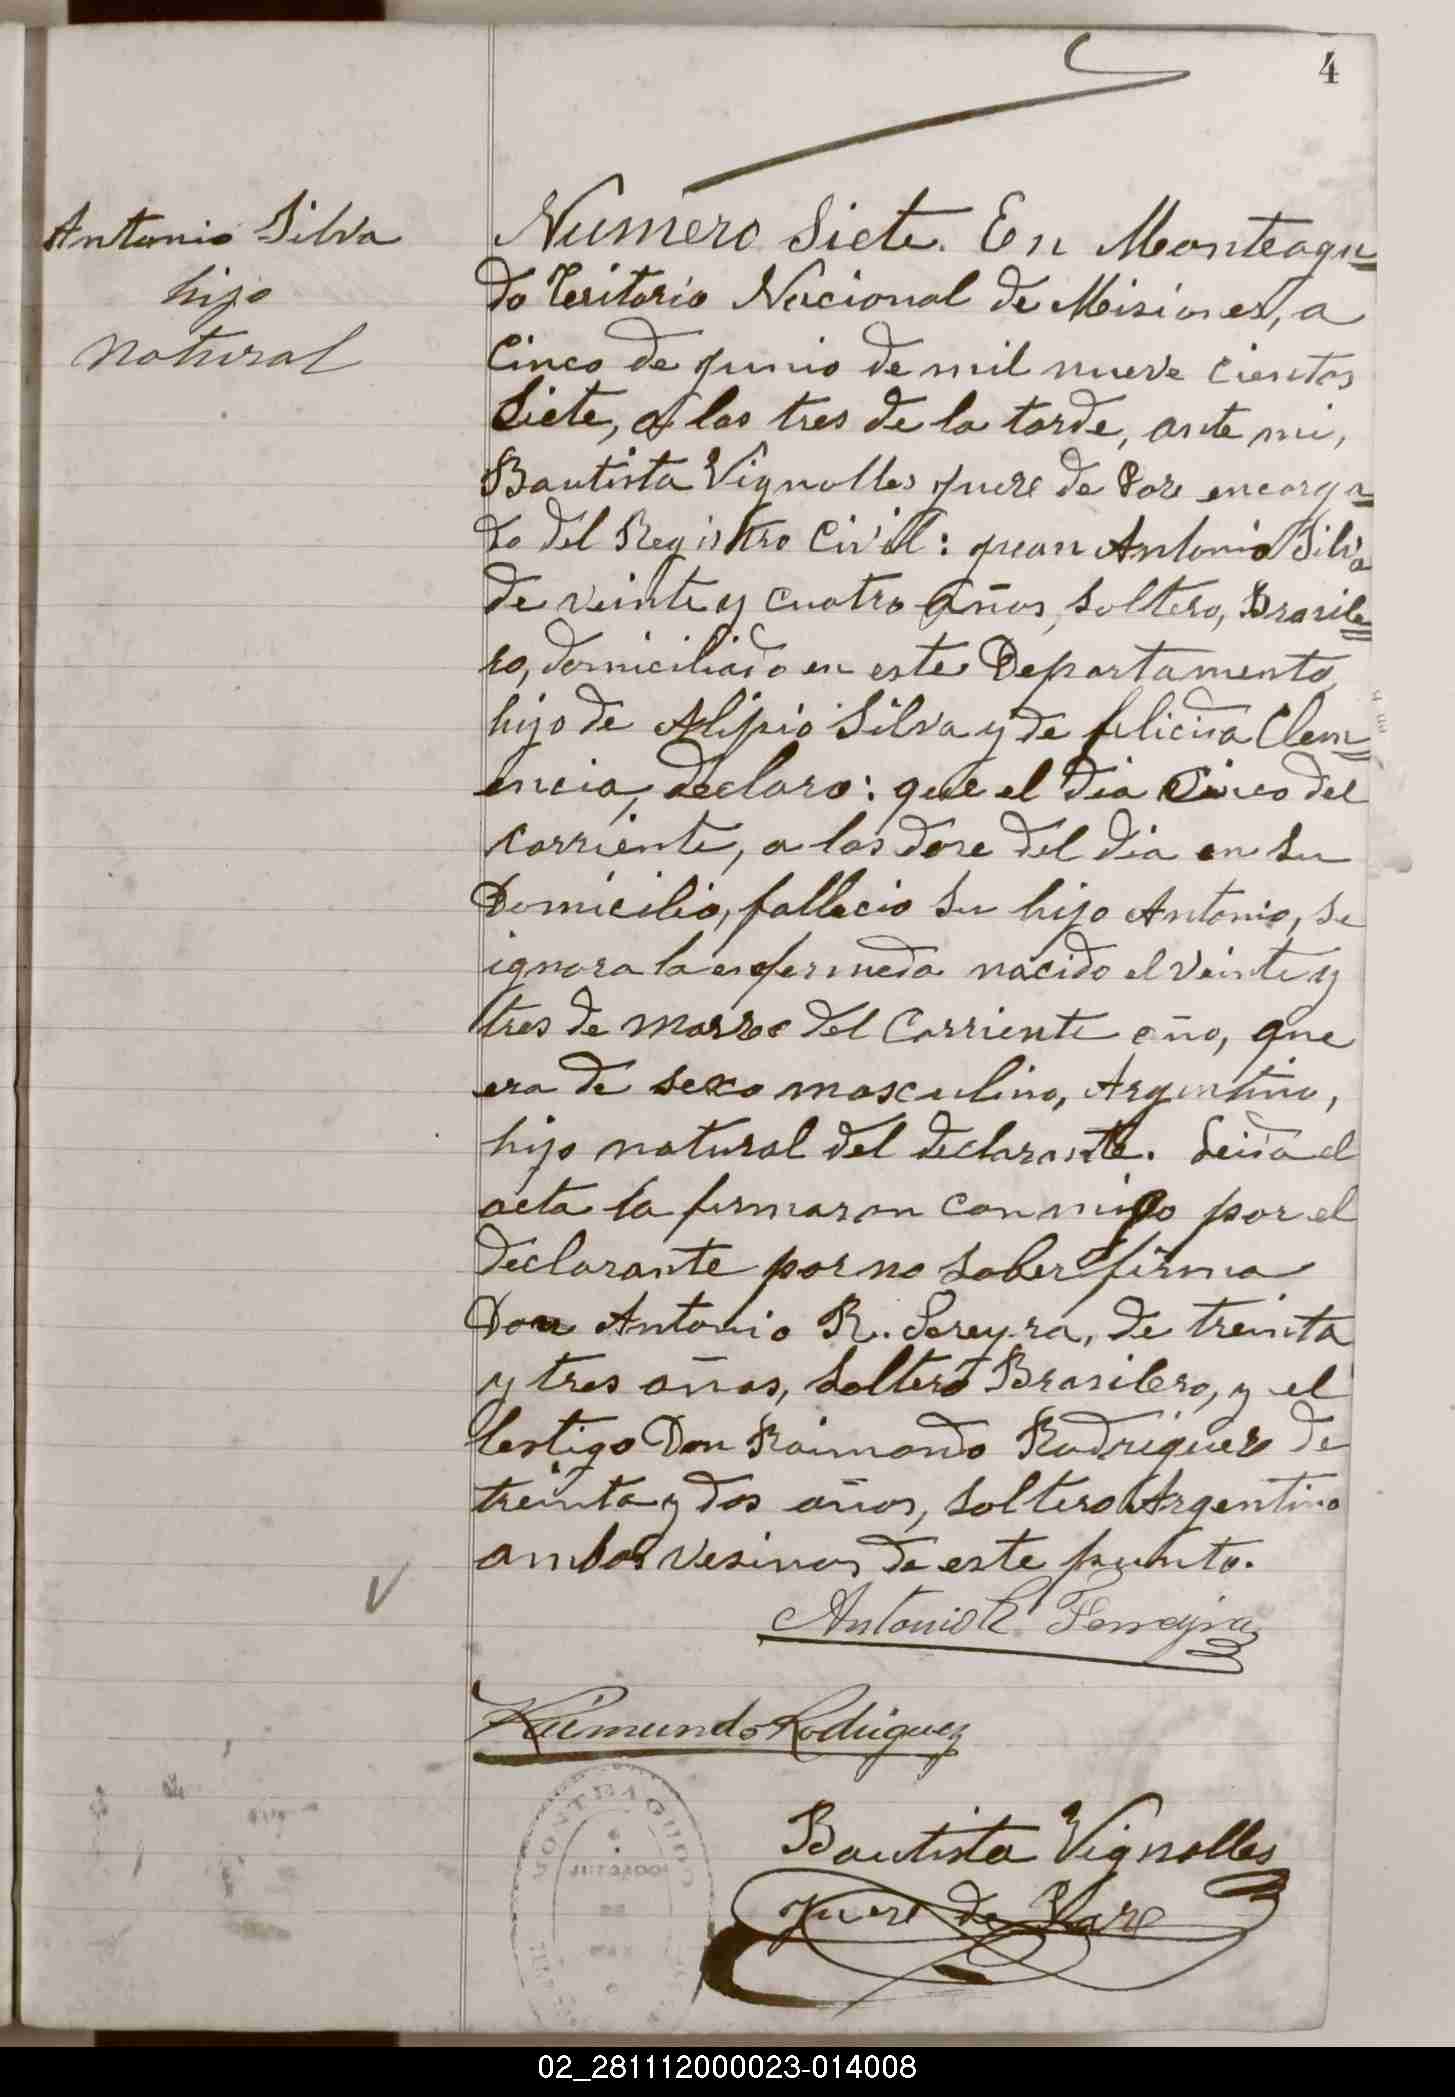 4
Antonio Silva
hijo
natural
Número Siete. En Monteagu=
do Teritorio Nacional de Misiones, a
Cinco de junio de mil nueve cientos
Siete, a las tres de la tarde, ante mi,
Bautista Vignolles juez de Paz encarga=
do del Registro Civil: juan Antonio Silva
de veinte y cuatro años, soltero, Brasile=
ro, domiciliado en este Departamento,
hijo de Alipio Silva y de felicida Clem=
encia, declaro: que el dia Cinco del
corriente, a las doze del dia en su
Domicilio, fallecio su hijo Antonio, se
ignora la enfermeda nacido el veinte y
tres de marzo del Corriente año, que
era de sexo masculino, Argentino,
hijo natural del declarante. Leida el
acta la firmaron conmigo por el
declarante por no saber firma
Don Antonio R. Fereyra, de treinta
y tres años, soltero Brasilero, y el
testigo Don Raimondo Rodriguez de
treinta y dos años, soltero Argentino
ambos vesinos de este punto.
Antonio R. Ferreyra
Raimundo Rodriguez
MONTEAGUDO
Bautista Vignolles
Juez de Paz
02_281112000023-014008